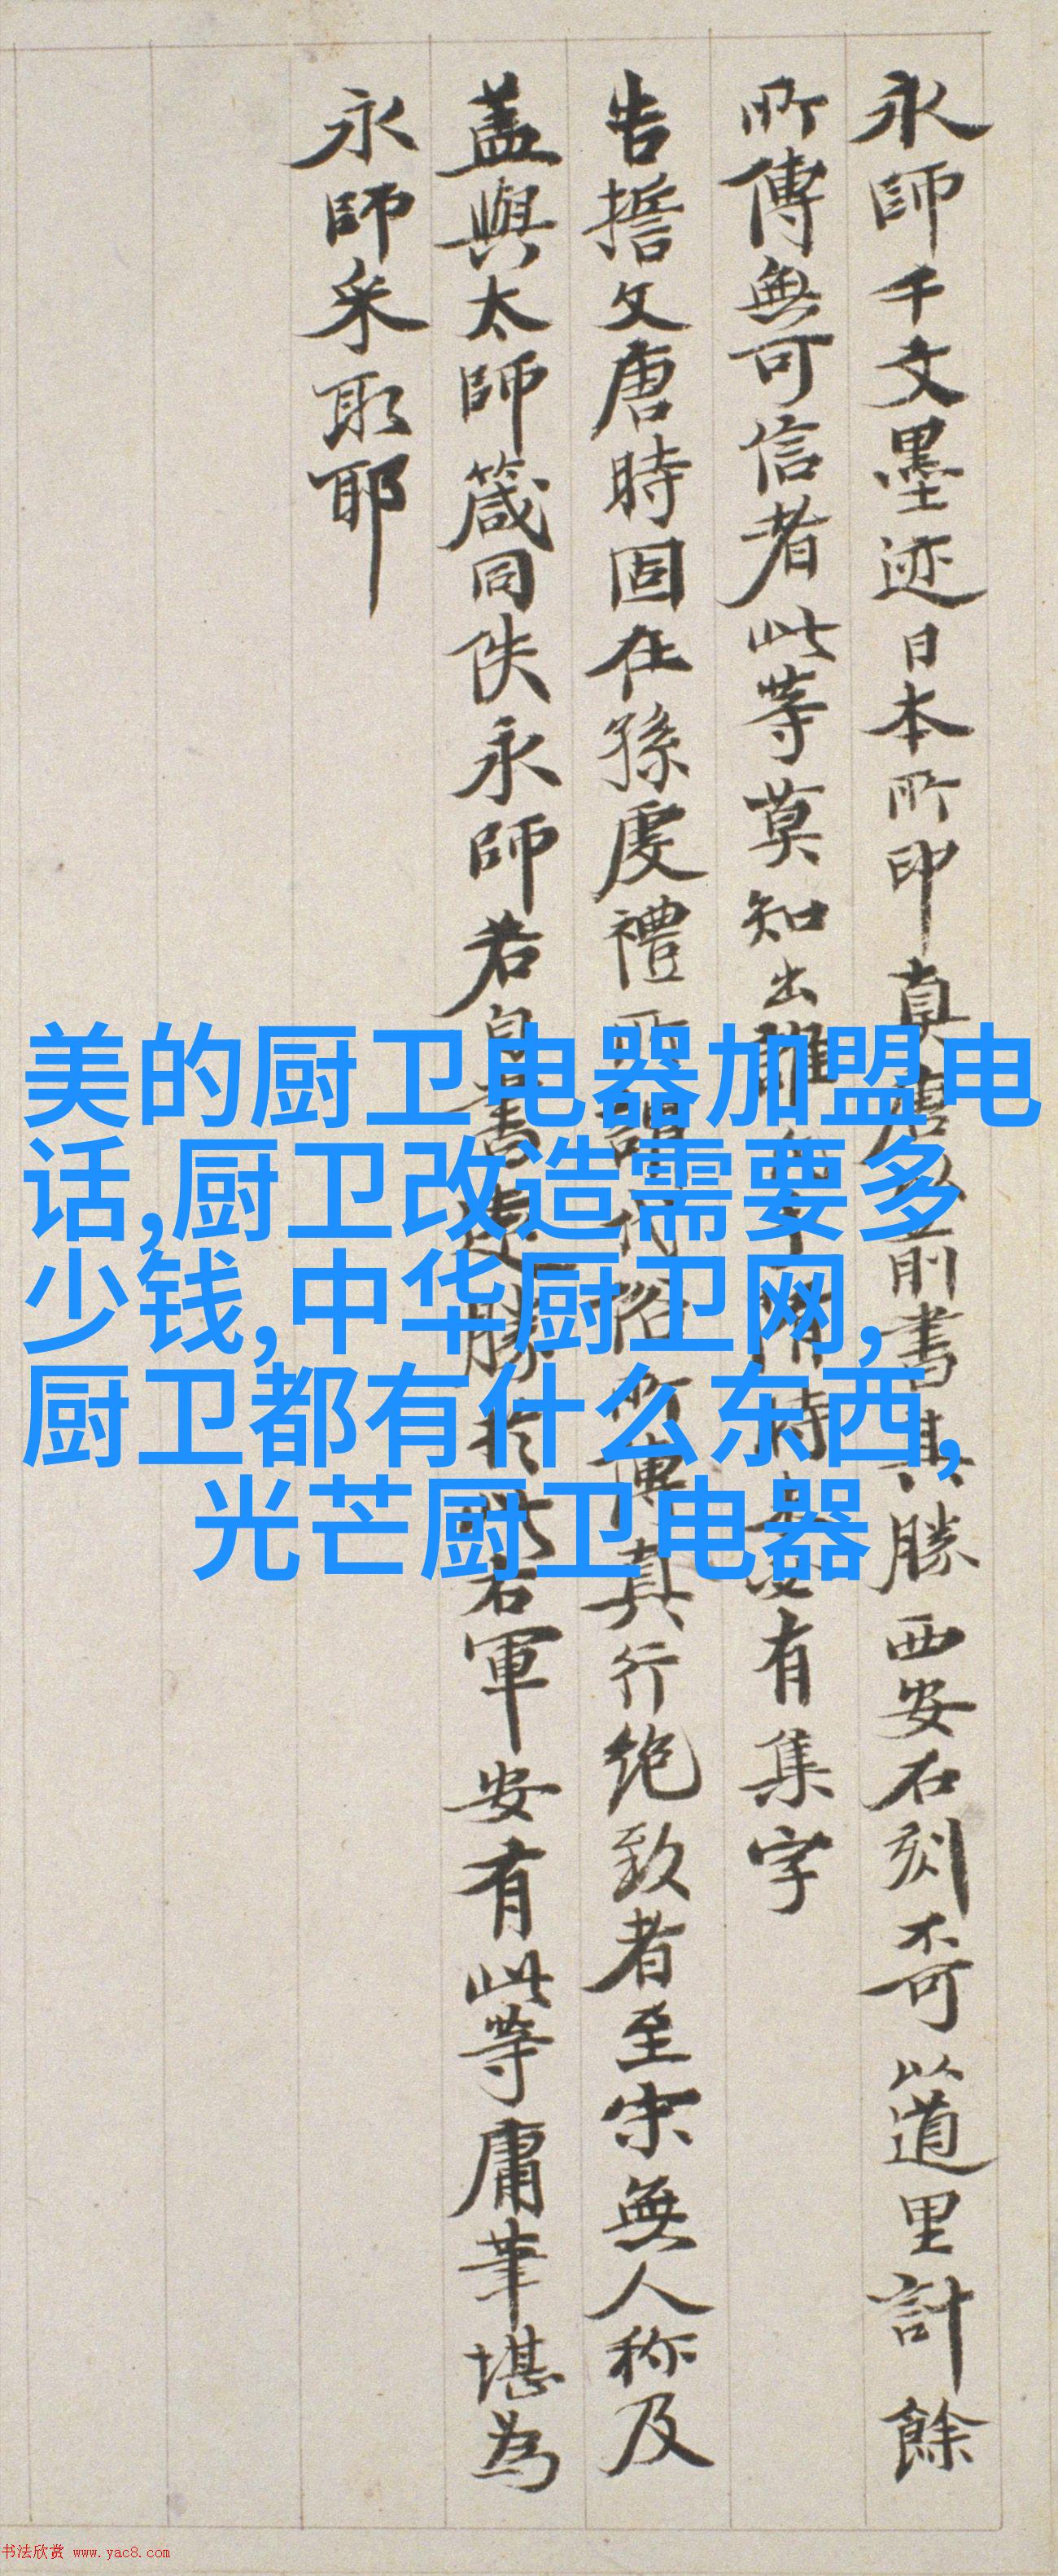 永師千文墨迹日本所印真唐以前書其勝西安石刻不可以道里計餘
所傳無可信者此等莫知出誰有集字
告誓文唐時固在孫虔禮所謂代俗所傳真行絶致者至宋無人称及
盖與太師箴同佚永師若自書勝於右軍安有此等庸筆堪為
永師采取耶
美的厨卫电器加盟电
话,厨卫改造需要多
少钱,中华厨卫网,
厨卫都有什么东西,
光芒厨卫电器
书法欣赏 www.yac8.com